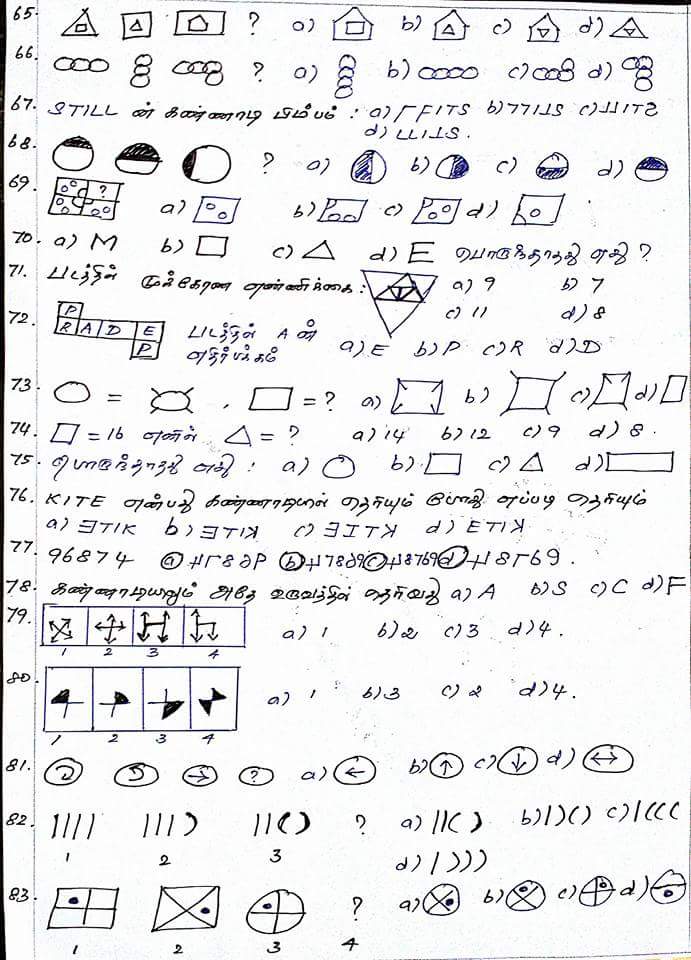 65. ? a) b) c) d)
66. ? a) b) c) d)
67. STILL ன் கண்ணாடி பிம்பம் : a) b) c)
d)
68. ? a) b) c) d)
69. ? a) b) c) d)
70. a) M b) c) d) E பொருந்தாதது எது ?
71. படத்தில் முக்கோண எண்ணிக்கை : a) 9 b) 7
c) 11 d) 8
72. P
R A D E
P
படத்தில் A ன்
எதிர்பக்கம்
a) E b) P c) R d) D
73. = , = ? a) b) c) d)
74. = 16 எனில் = ? a) 14 b) 12 c) 9 d) 8.
75. பொருந்தாதது எது : a) b) c) d)
76. KITE என்பது கண்ணாடியில் தெரியும் போது எப்படி தெரியும்
a) b) c) d)
77. 96874 a) b) c) d)
78. கண்ணாடியிலும் அதே உருவத்தில் தெரிவது a) A b) S c) C d) F
79. a) 1 b) 2 c) 3 d) 4.
1 2 3 4
80. a) 1 b) 3 c) 2 d) 4.
1 2 3 4
81. ? a) b) c) d)
82. ? a) b) c)
1 2 3
d)
83. ? a) b) c) d)
1 2 3 4